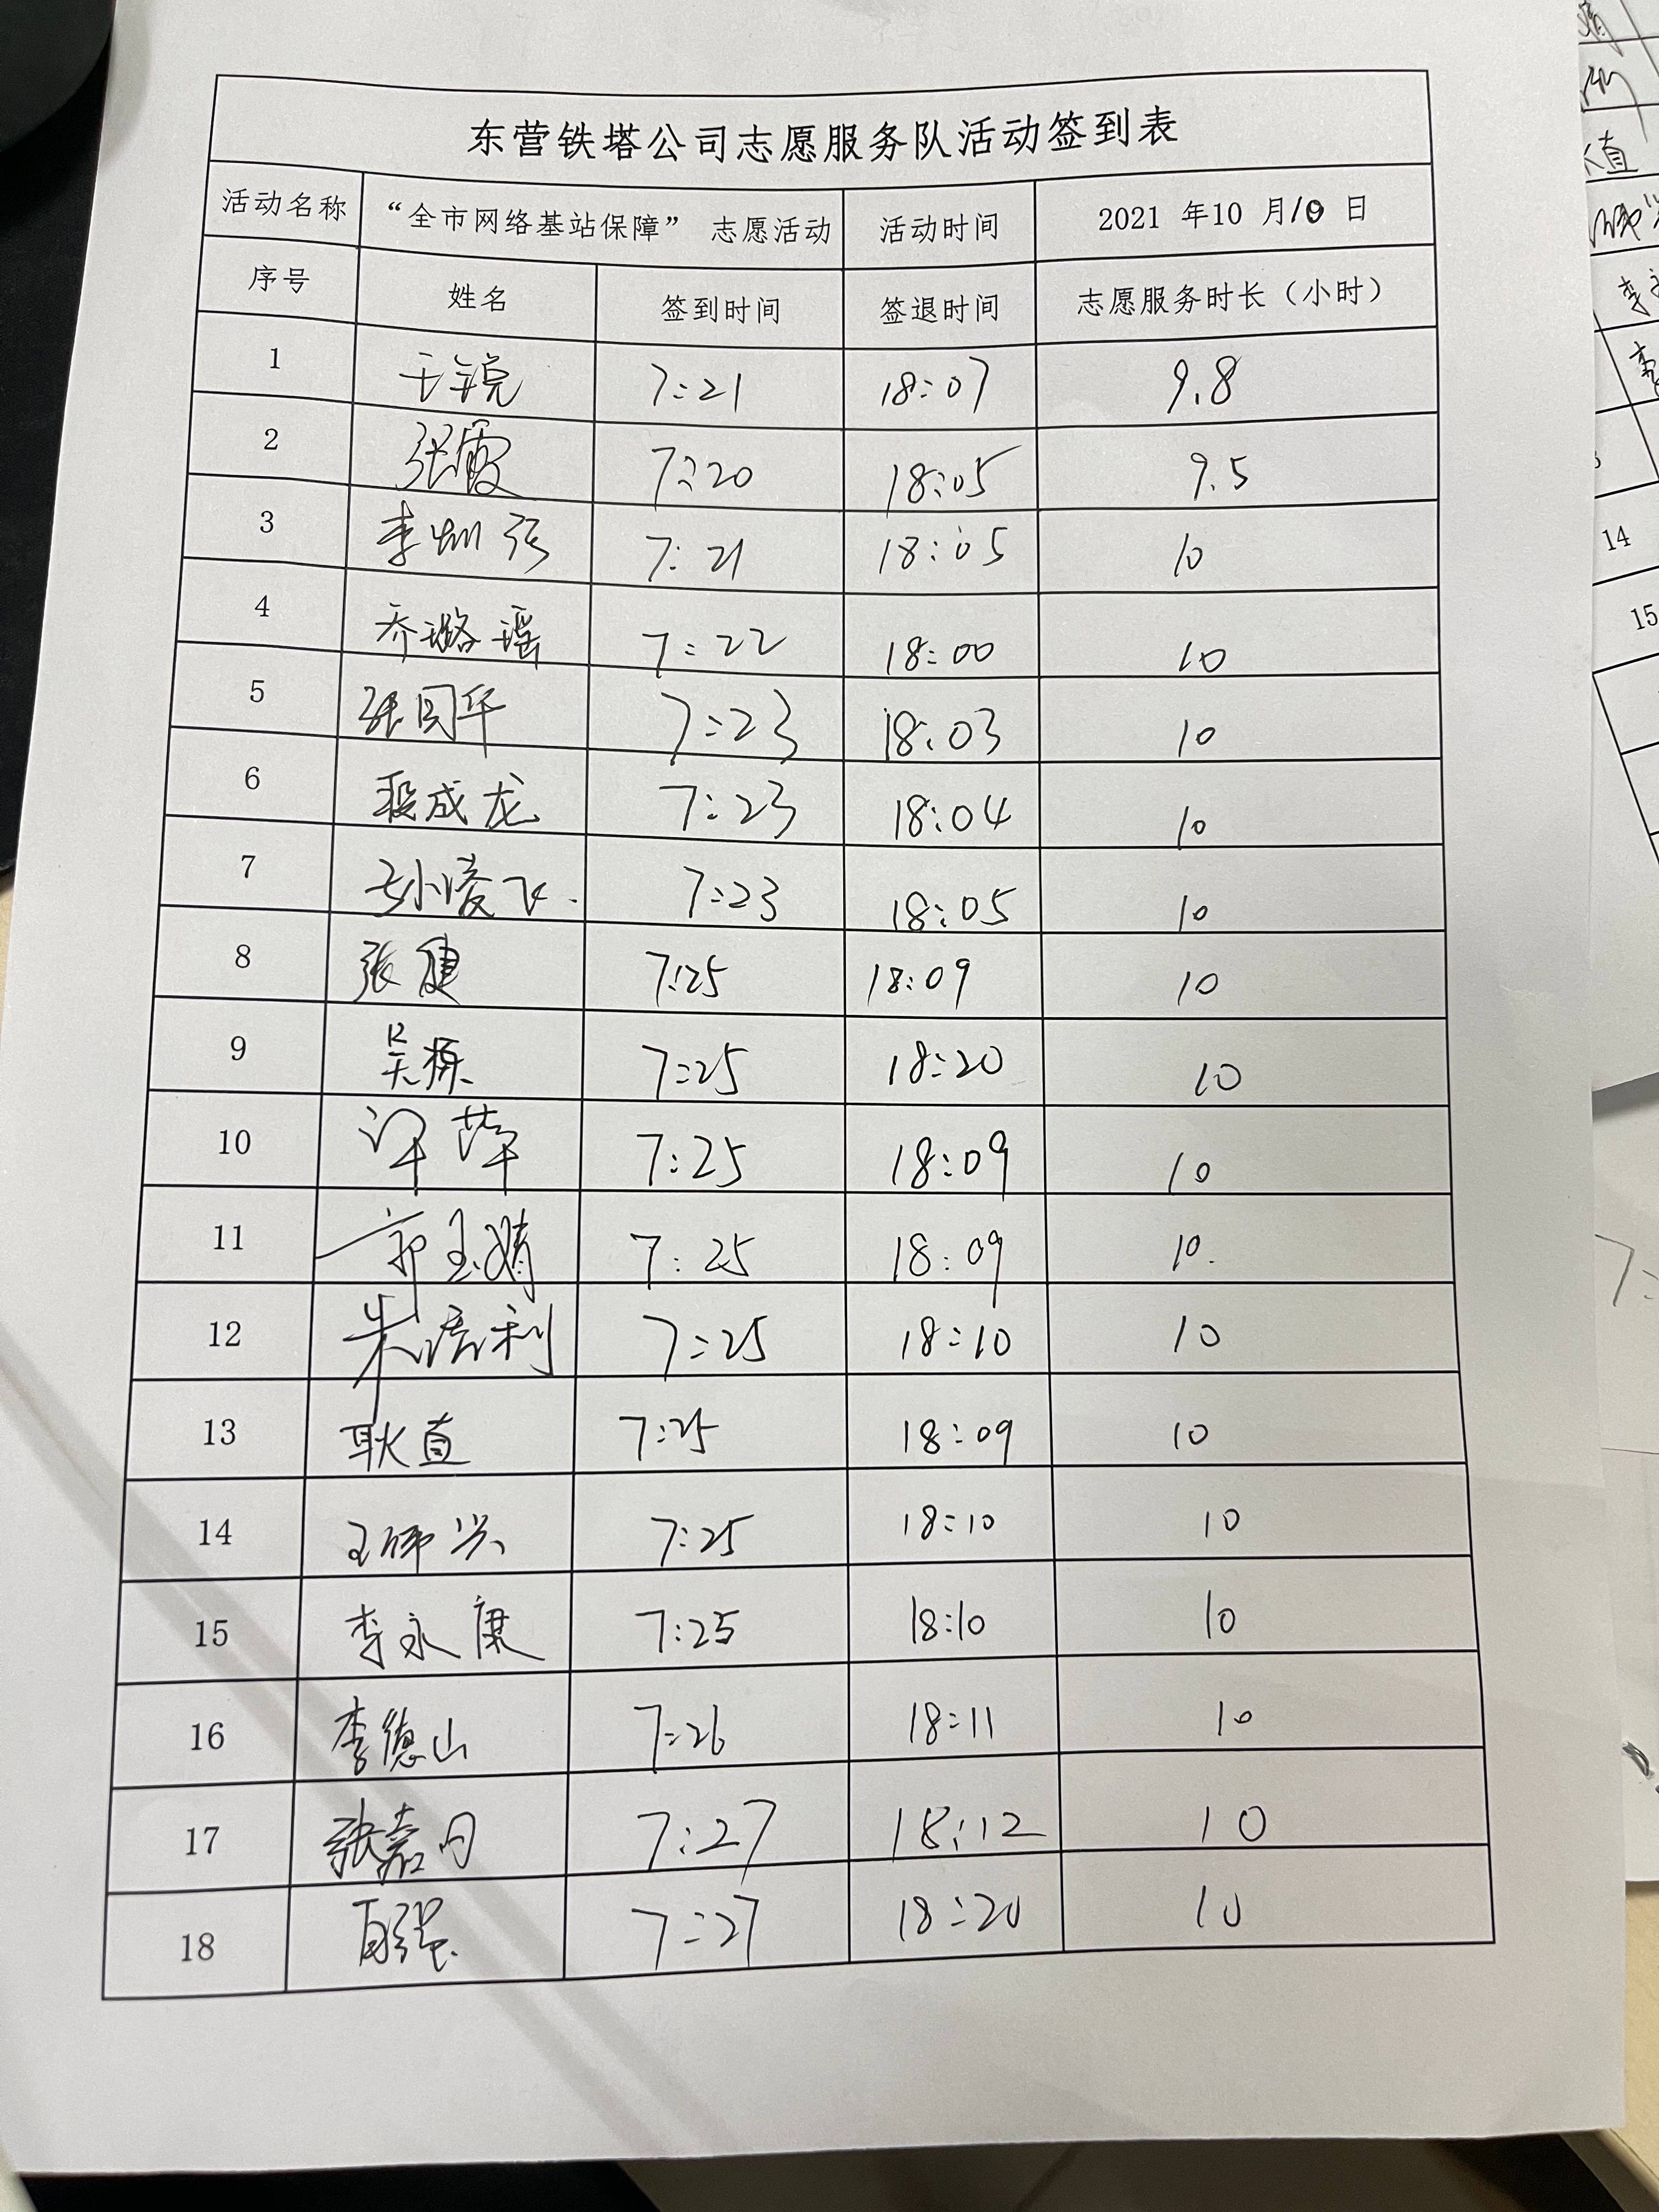 东营铁塔公司志愿服务队活动签到表
活动名称 “全市网络基站保障” 志愿活动 活动时间 2021 年10 月10 日
序号 姓名 签到时间 签退时间 志愿服务时长（小时）
1 7:21 18:07 9.8
2 张霞 7:20 18:05 9.5
3 李 7:21 18:05 10
4 乔璐瑶 7:22 18:00 10
5 张国华 7:23 18:03 10
6 段成龙 7:23 18:04 10
7 7:23 18:05 10
8 张健 7:25 18:09 10
9 吴栋 7:25 18:20 10
10 许萍 7:25 18:09 10
11 郭玉婧 7:25 18:09 10
12 朱洪利 7:25 18:10 10
13 耿直 7:25 18:09 10
14 王 兴 7:25 18:10 10
15 李永康 7:25 18:10 10
16 李德山 7:26 18:11 10
17 张嘉丹 7:27 18:12 10
18 百强 7:27 18:20 10
直
14
15